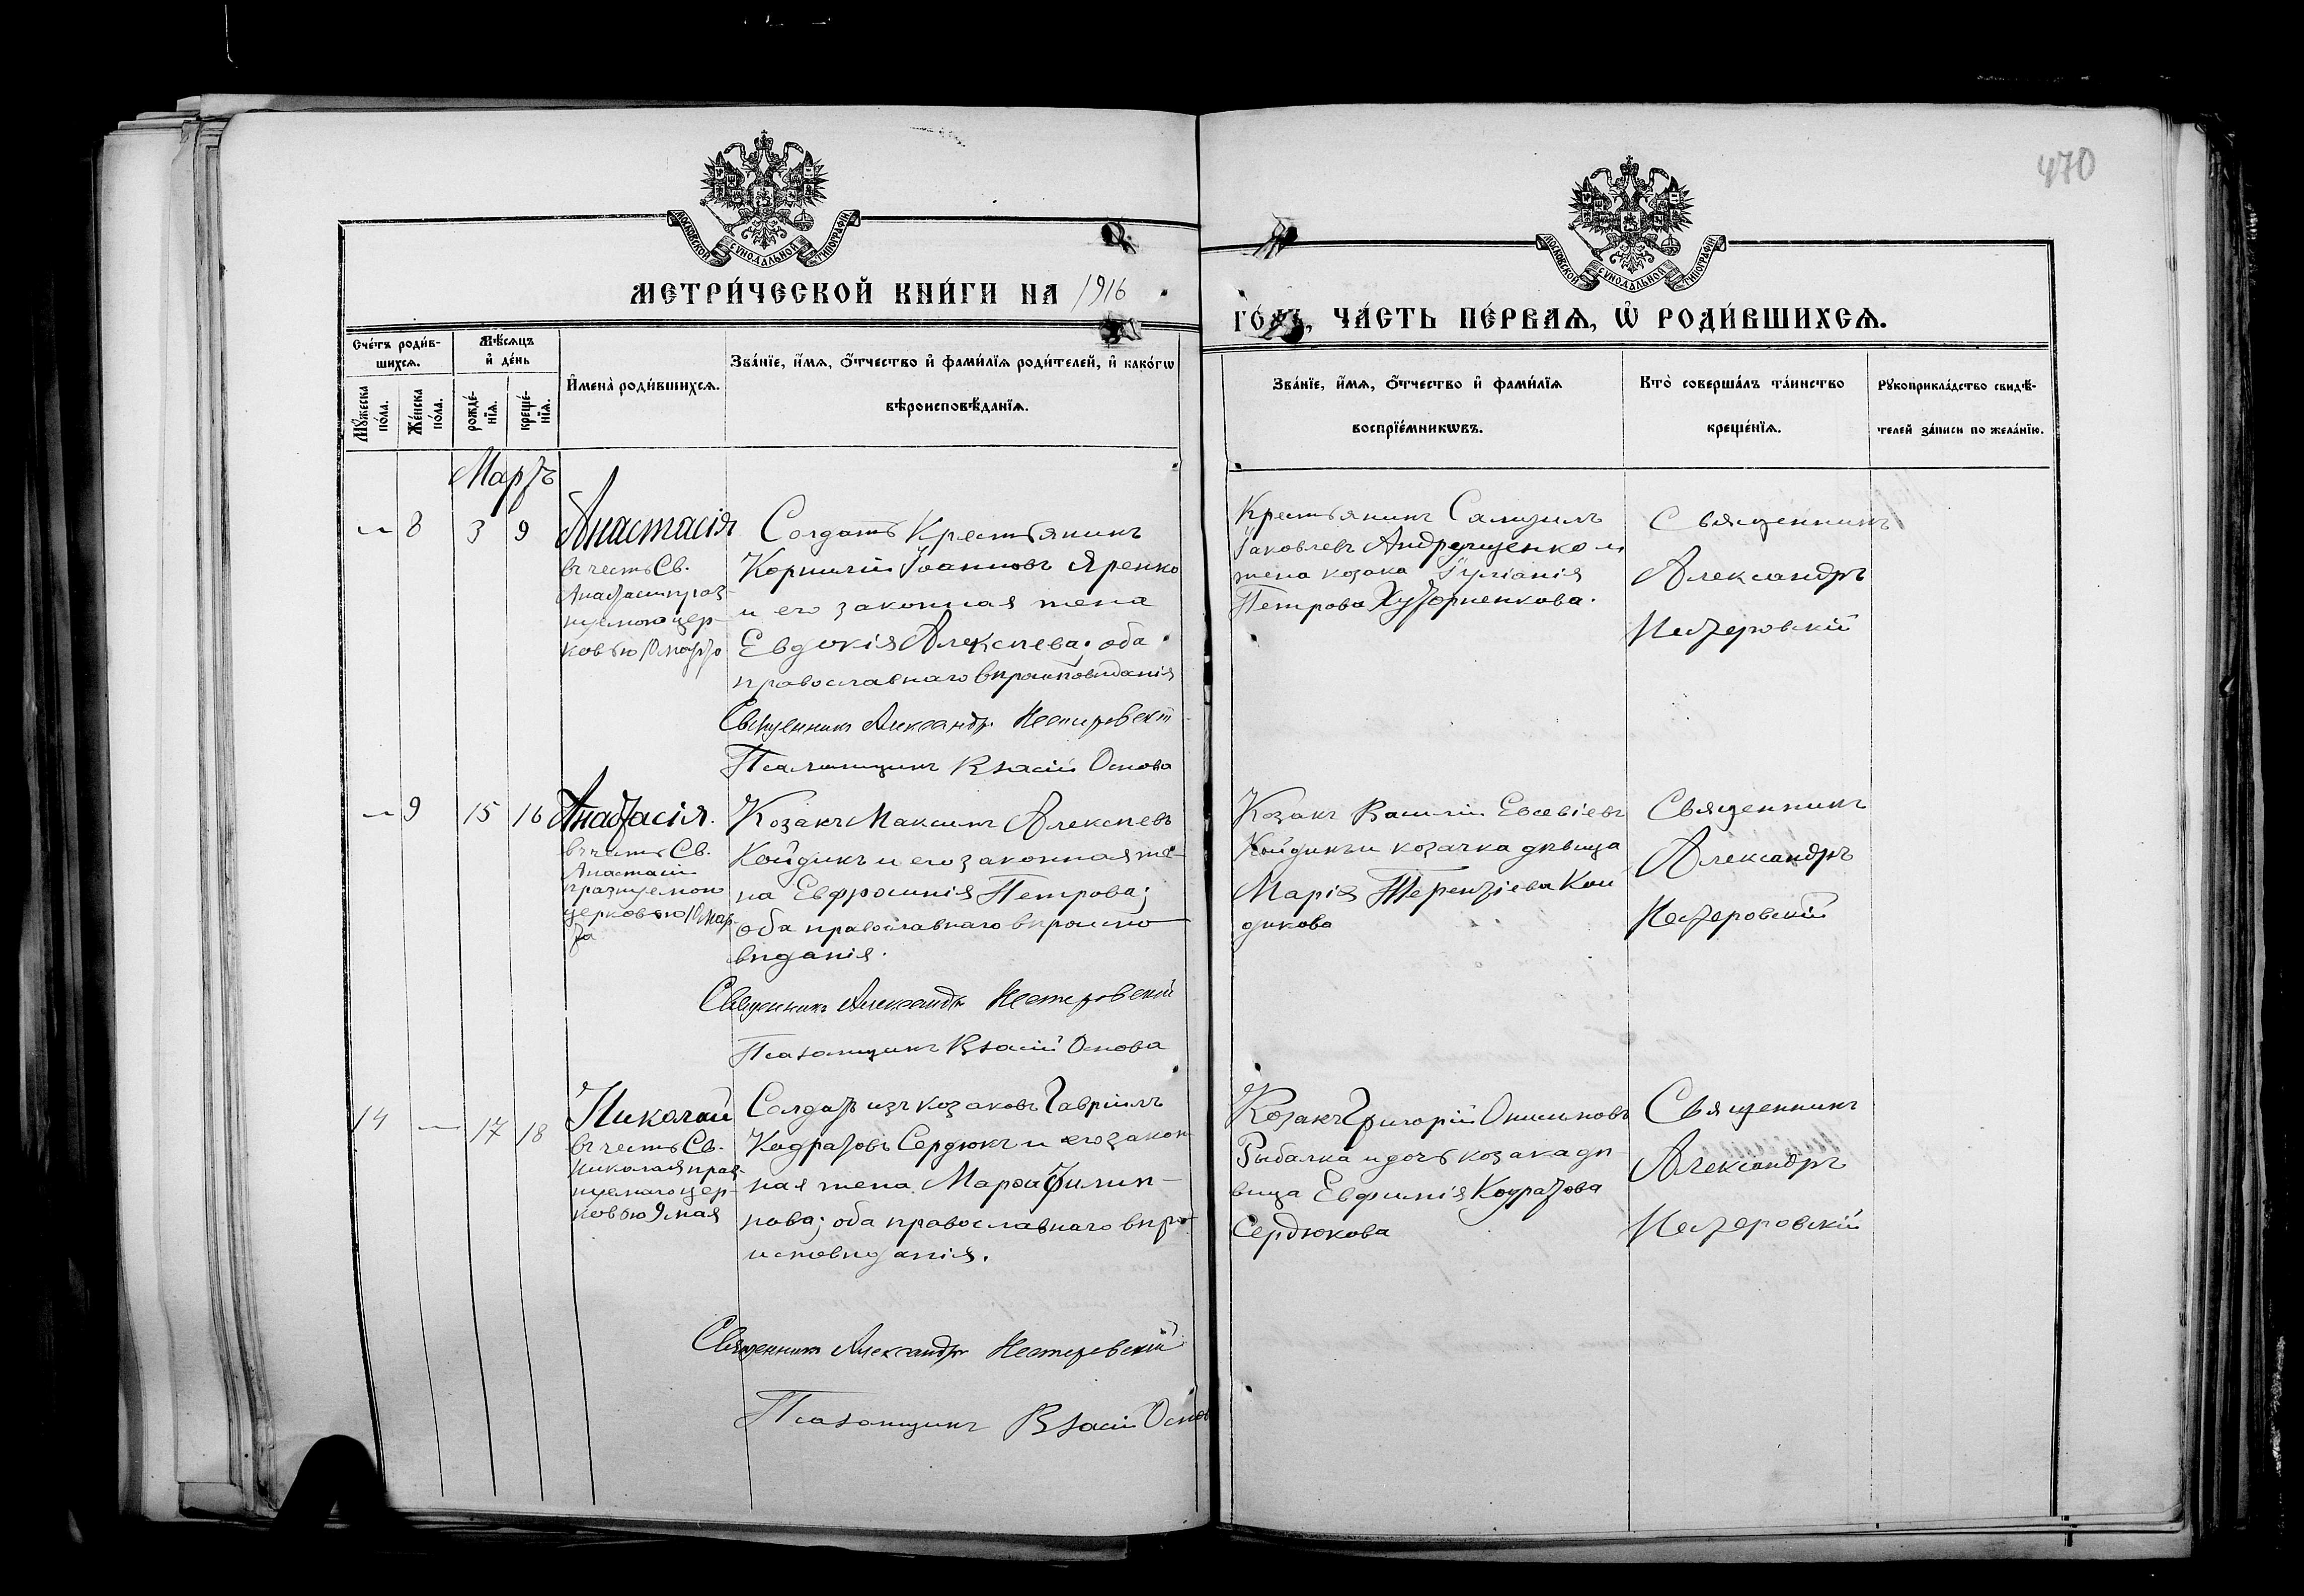 470
МОСКОВСКОЙ СѴНОДАЛЬНОЙ ТИПОГРАФІИ
МОСКОВСКОЙ СѴНОДАЛЬНОЙ ТИПОГРАФІИ
МЕТРИ́ЧЕСКОЙ КНИ́ГИ НА 1916
ГО́ДЪ, ЧА́СТЬ ПЕ́РВАѦ, Ѡ҆ РОДИ́ВШИХСѦ.
Сче́тъ роди́в-
шихсѧ.
Мꙋ́жеска по́ла.
Же́нска по́ла.
Мѣ́сѧцъ
и҆ де́нь
рожде́-
нїѧ.
креще́-
нїѧ.
И҆мена̀ роди́вшихсѧ.
Зва́нїе, и҆́мѧ, ѻ҆́тчество и҆ фами́лїѧ роди́телей, и҆ како́гѡ
вѣроисповѣ́данїѧ.
Зва́нїе, и҆́мѧ, ѻ҆́тчество и҆ фами́лїѧ
воспрїе́мникѡвъ.
Кто̀ соверша́лъ та́инство
креще́нїѧ.
Рꙋкоприкла́дство свидѣ́-
телей за́писи по жела́нїю.
Мартъ
— 8 3 9
Анастасія
въ честь Св.
Анастасіи праз-
нуемой цер-
ковью 10 марта
Солдатъ Крестьянинъ
Корнилій Іоанновъ Яренко
и его законная жена
Евдокія Алексѣева; оба
православнаго вѣроисповѣданія
Священникъ Александръ Нестеровскій
Псаломщикъ Власій Основа
Крестьянинъ Самуилъ
Іаковлевъ Андрущенко и
жена козака Іуліанія
Петрова Хуторненкова.
Священникъ
Александръ
Нестеровскій
— 9 15 16
Анастасія.
въ честь Св.
Анастасіи
празнуемой
церковью 10 мар-
та
Козакъ Максимъ Алексѣевъ
Койдикъ и его законная же-
на Евфросинія Петрова;
оба православнаго вѣроиспо-
вѣданія.
Священникъ Александръ Нестеровскій
Псаломщикъ Власій Основа
Козакъ Василій Евсевіевъ
Койдикъ и козачка дѣвица
Марія Терентіева Кой
дикова
Священникъ
Александръ
Нестеровскій
14 — 17 18
Николай
въ честь Св.
Николая праз-
нуемаго цер-
ковью 9 мая
Солдатъ изъ козаковъ Гавріилъ
Кодратовъ Сердюкъ и его закон-
ная жена Марфа Филип-
пова; оба православнаго вѣро-
исповѣданія.
Священникъ Александръ Нестеровскій
Псаломщикъ Власій Основ
Козакъ Григорій Онисимовъ
Рыбалка и дочь козака дѣ-
вица Евфимія Кодратова
Сердюкова
Священникъ
Александръ
Нестеровскій